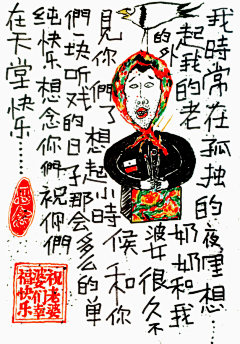 我時常在孤独的夜里想……
起我的老奶奶和我
的外婆很久不
見你們了想起小時候和你
們一块听戏的日子那会多么的单
纯快乐想念你們祝你們
在天堂快乐……
思念
祝老婆
婆们幸
福快乐